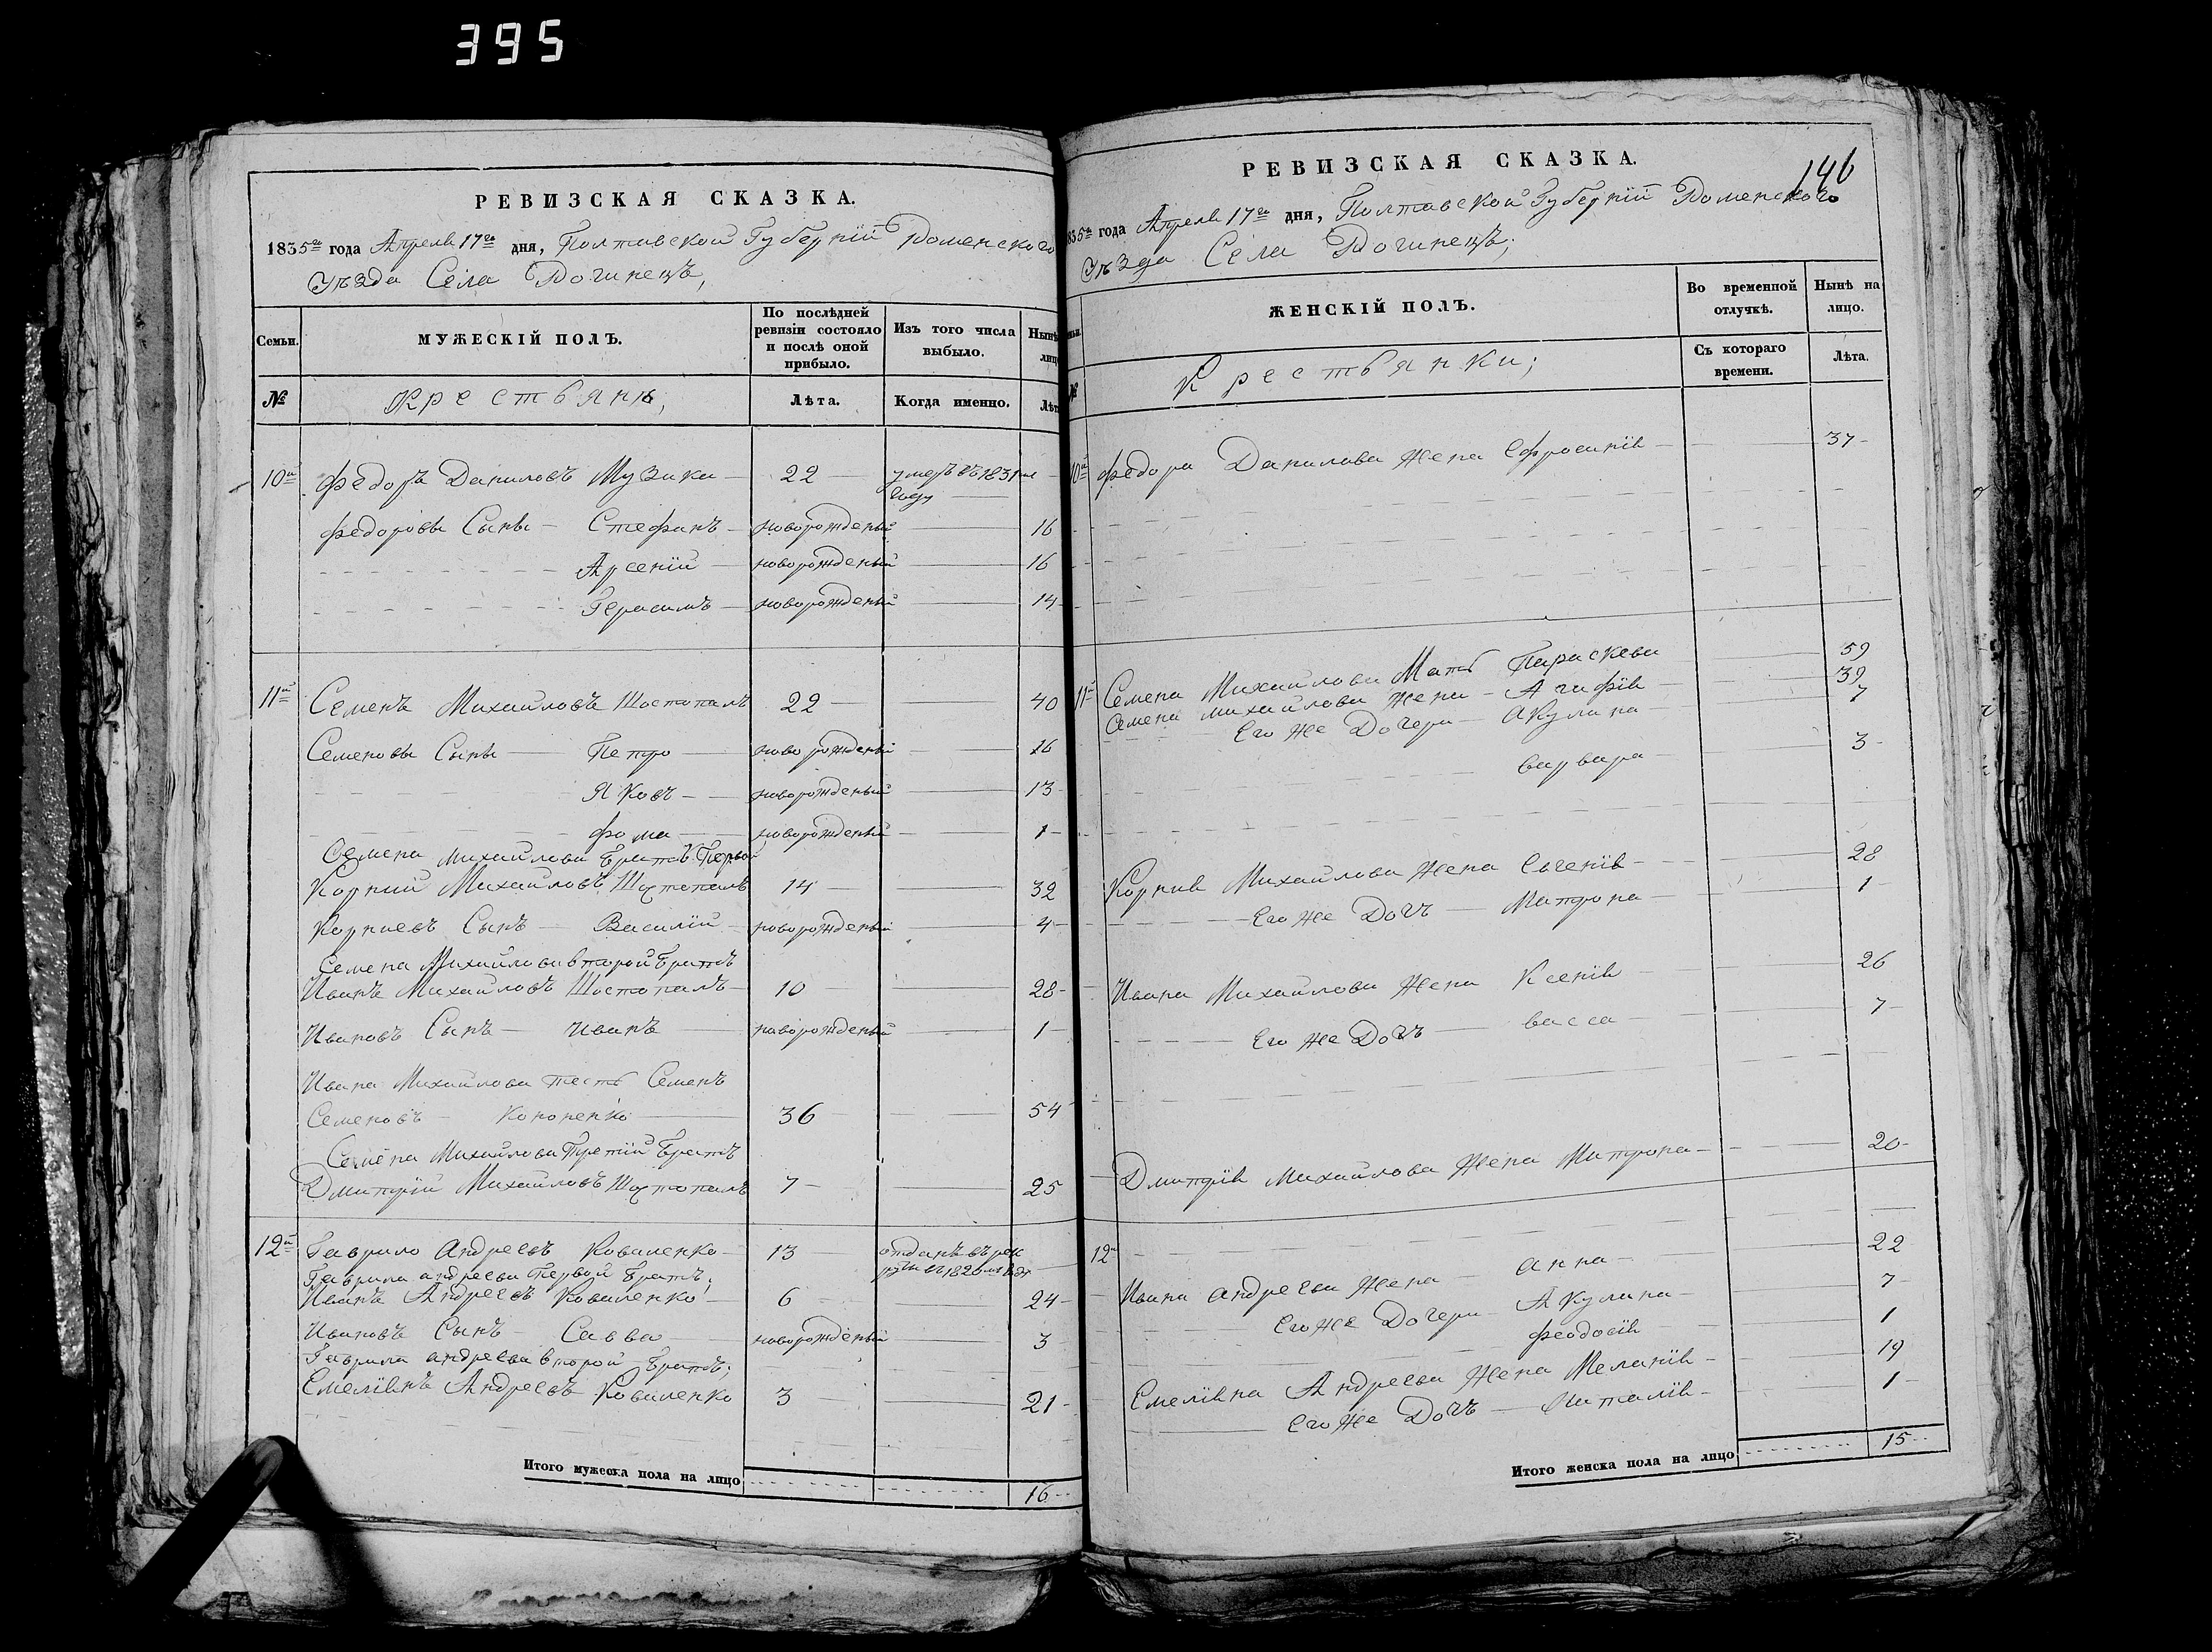 395
РЕВИЗСКАЯ СКАЗКА.
1835го года Апреля 17го дня, Полтавской Губерніи Роменского
Уѣзда Села Рогинецъ,
Семьи.
МУЖЕСКІЙ ПОЛЪ.
По послѣдней ревизіи состояло и послѣ оной прибыло.
Изъ того числа выбыло.
Нынѣ
№
Крестьянѣ;
Лѣта.
Когда именно.
10й Федоръ Даниловъ Музика 22 умеръ въ 1831м году
Федоровы Сыны Стефанъ новорожденый 16
Арсеній новорожденый 16
Герасимъ новорожденый 14
11й Семенъ Михайловъ Шостопалъ 22 40
Семеновы Сыны Петро новорожденый 16
Яковъ новорожденый 13
Фома новорожденый 1
Семена Михайлова братъ Первой
Корній Михайловъ Шостопалъ 14 32
Корніевъ Сынъ Василій новорожденый 4
Семена Михайлова второй братъ
Иванъ Михайловъ Шостопалъ 10 28
Ивановъ Сынъ Иванъ новорожденый 1
Ивана Михайлова тесть Семенъ
Семеновъ Кононенко 36 54
Семена Михайлова Третій братъ
Дмитрій Михайловъ Шостопалъ 7 25
12й Гаврило Андреевъ Коваленко 13 отданъ въ рекруты въ 1820м году
Гаврила андреева Первой братъ;
Иванъ Андреевъ Коваленко 6 24
Ивановъ Сынъ Савва новорожденый 3
Гаврила андреева второй братъ;
Емеліянъ Андреевъ Коваленко 3 21
Итого мужеска пола на лицо 16
146
РЕВИЗСКАЯ СКАЗКА.
1835го года Апреля 17го дня, Полтавской Губерніи Роменского
Уѣзда Села Рогинецъ;
ЖЕНСКІЙ ПОЛЪ.
Во временной отлучкѣ.
Нынѣ на лицо.
№
Крестьянки;
Съ котораго времени.
Лѣта.
10й Федора Данилова жена Ефросинія 37
11й Семена Михайлова Мать Параскева 59
Семена Михайлова жена Агафія 39
Его же Дочери Акулина 7
варвара 3
Корнія Михайлова жена Евгенія 28
Его же Дочъ Матрона 1
Ивана Михайлова жена Ксенія 26
Его же Дочъ васса 7
Дмитрія Михайлова жена Матрона 20
12й
Ивана андреева жена анна 22
Его же Дочери Акулина 7
феодосія 1
Емеліяна Андреева жена Меланія 19
Его же Дочъ Наталія 1
Итого женска пола на лицо 15